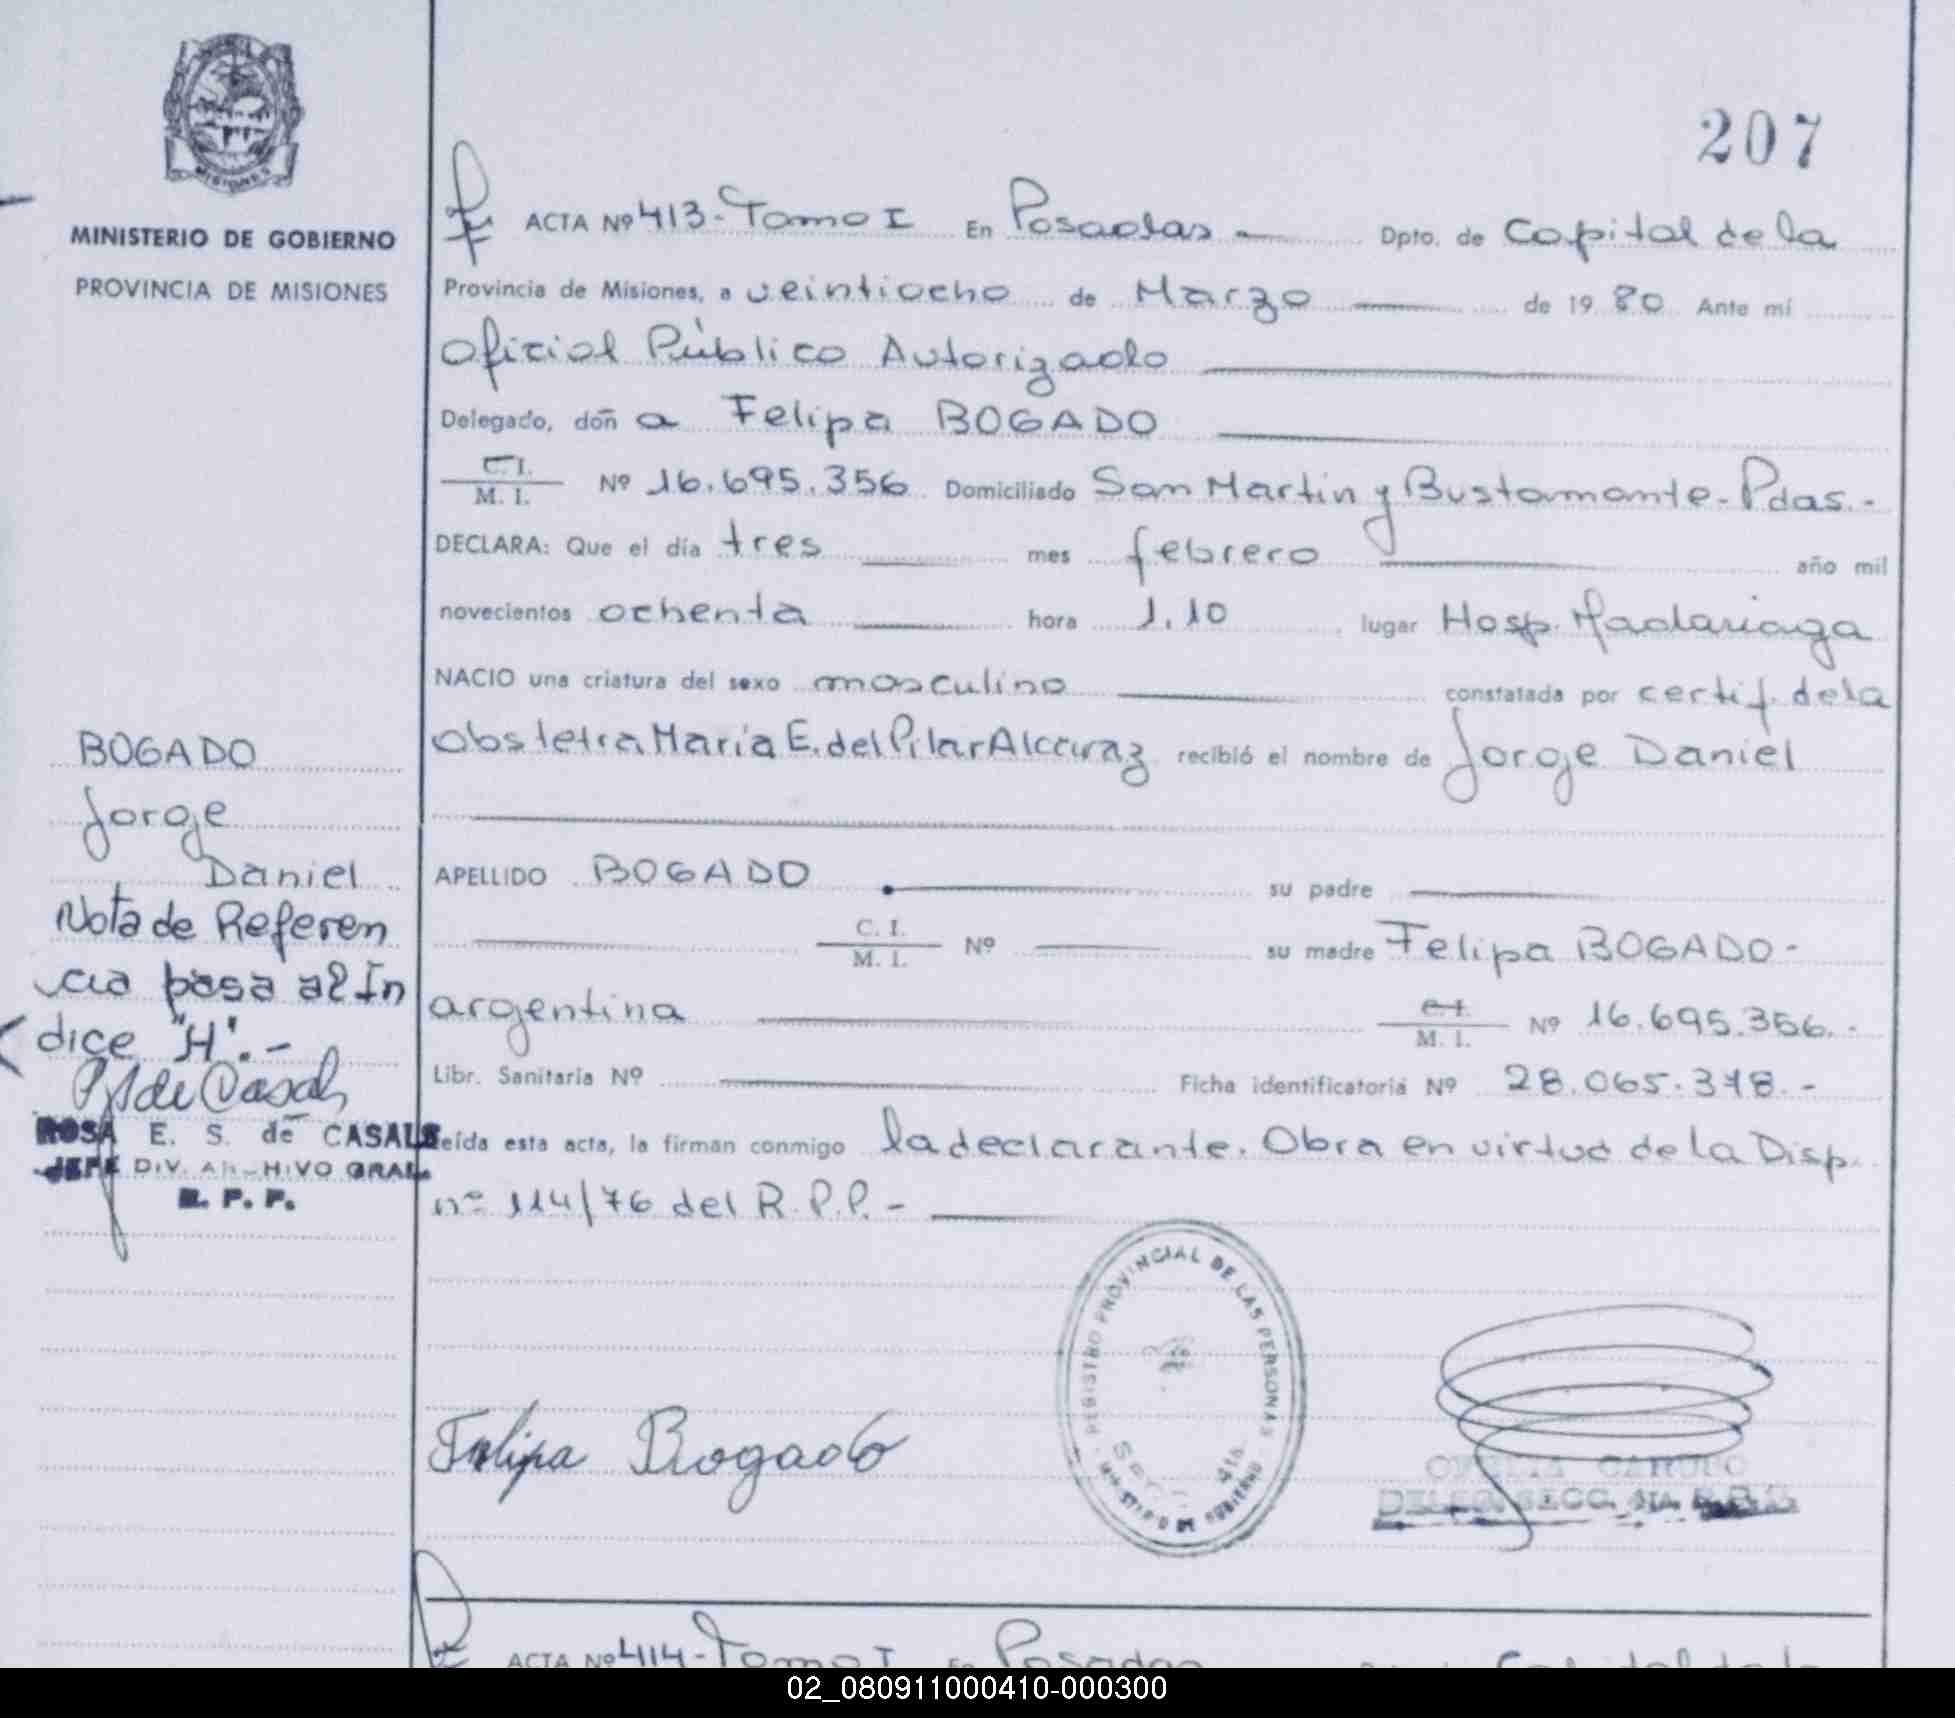 MISIONES
MINISTERIO DE GOBIERNO
PROVINCIA DE MISIONES
207
ACTA Nº 413-Tomo I En Posadas Dpto. de Capital de la
Provincia de Misiones, a veintiocho de Marzo de 19 80 Ante mí
Oficial Público Autorizado
Delegado, doñ a Felipa BOGADO
C. I.
M. I. Nº 16.695.356 Domiciliado San Martin y Bustamante-Pdas.-
DECLARA: Que el día tres mes febrero año mil
novecientos ochenta hora 1.10 lugar Hosp. Madariaga
NACIO una criatura del sexo masculino constatada por certif. de la
Obstetra María E. del Pilar Alcaraz recibió el nombre de Jorge Daniel
APELLIDO BOGADO su padre
C. I.
M. I. Nº su madre Felipa BOGADO-
argentina C. I.
M. I. Nº 16.695.356.-
Libr. Sanitaria Nº Ficha identificatoria Nº 28.065.378.-
Leída esta acta, la firman conmigo la declarante. Obra en virtud de la Disp.
nº 114/76 del R.P.P.-
BOGADO
Jorge
Daniel
Nota de Referen
cia pasa al In
dice "H".-
ROSA E. S. de CASALS
JEFE DIV. ARCHIVO GRAL.
R. P. P.
Felipa Bogado
REGISTRO PROVINCIAL DE LAS PERSONAS
4ta.
DELEG. SECC. 4TA.
ACTA Nº 414-Tomo I En Posadas
02_080911000410-000300